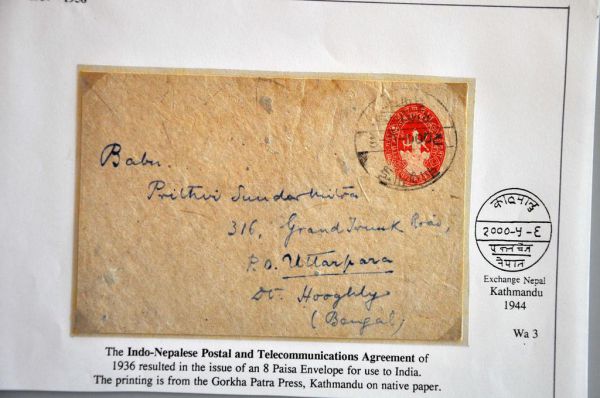 1936
Babu.
Prithvi Sundar Mitra
316, Grand Trunk Road,
P.O. Uttarpara
Dt. Hooghly
(Bengal)
काठमाडु
२०००-५-६
नेपाल
Exchange Nepal
Kathmandu
1944
Wa 3
The Indo-Nepalese Postal and Telecommunications Agreement of
1936 resulted in the issue of an 8 Paisa Envelope for use to India.
The printing is from the Gorkha Patra Press, Kathmandu on native paper.